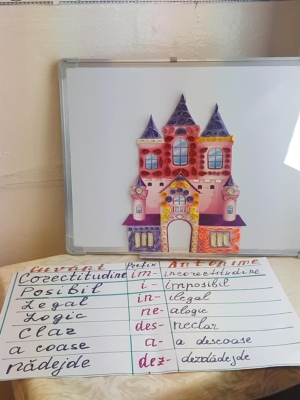 Cuvânt Prefix Antonime
Corectitudine im- incorectitudine
Posibil i- Imposibil
Legal in- ilegal
Logic ne- alogic
Clar des- neclar
a coase a- a descoase
nădejde dez- deznădejde